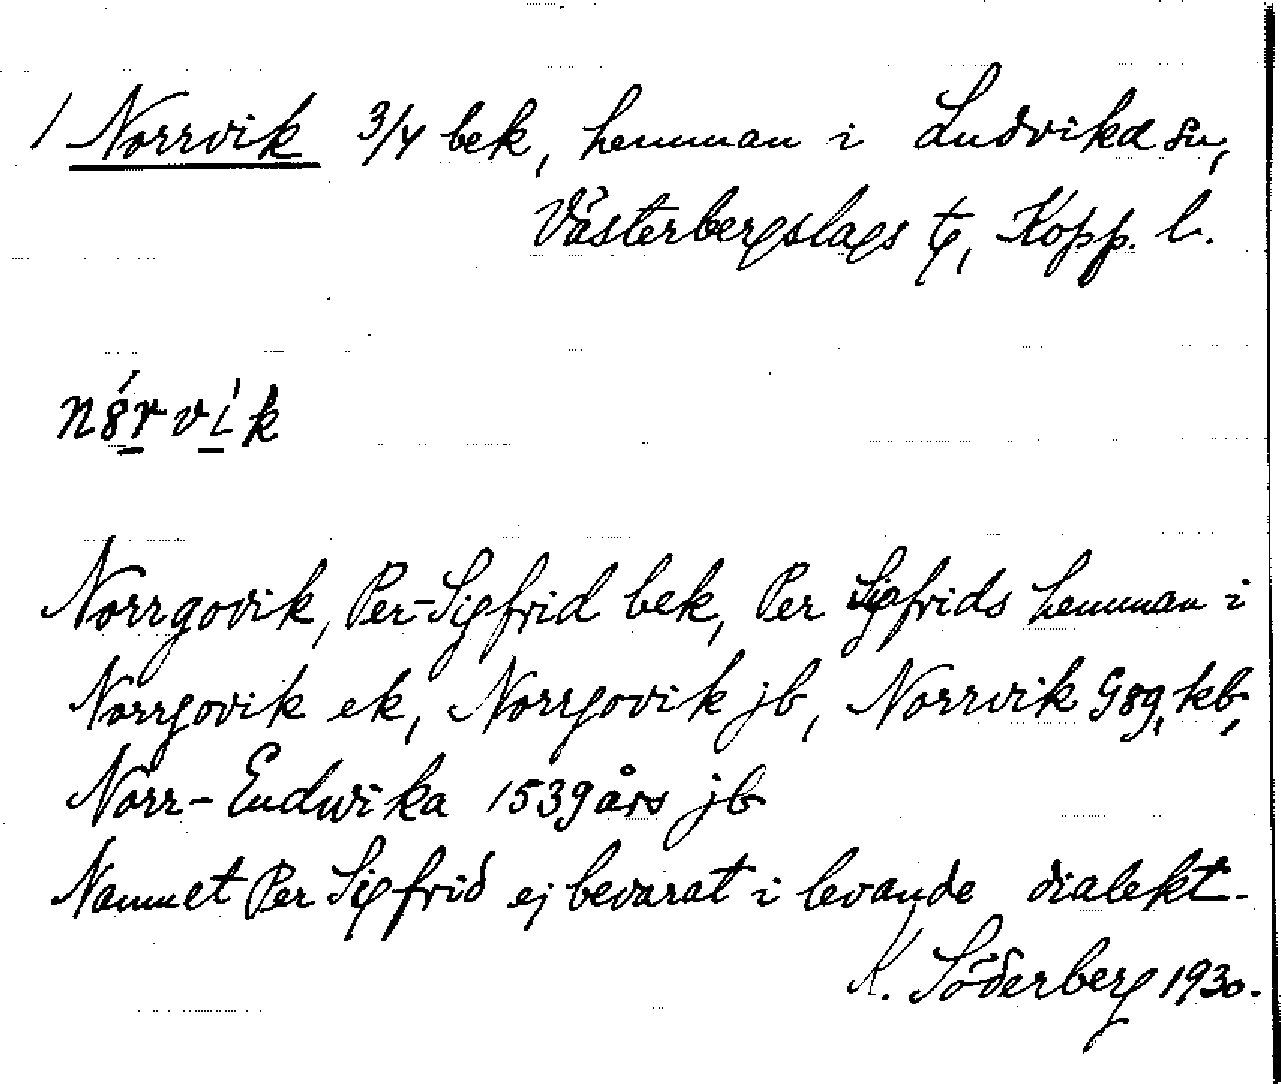 1 Norrvik 3/4 bek, hemman i Ludvika sn,
Västerbergslags tg, Kopp. l.
Norrgovik, Per-Sigfrid bek, Per Sigfrids hemman i
Norrgovik ek, Norrgovik jb, Norrvik G89, kb,
Norr-Ludwika 1539 års jb
Namnet Per Sigfrid ej bevarat i levande dialekt.
K. Söderberg 1930.